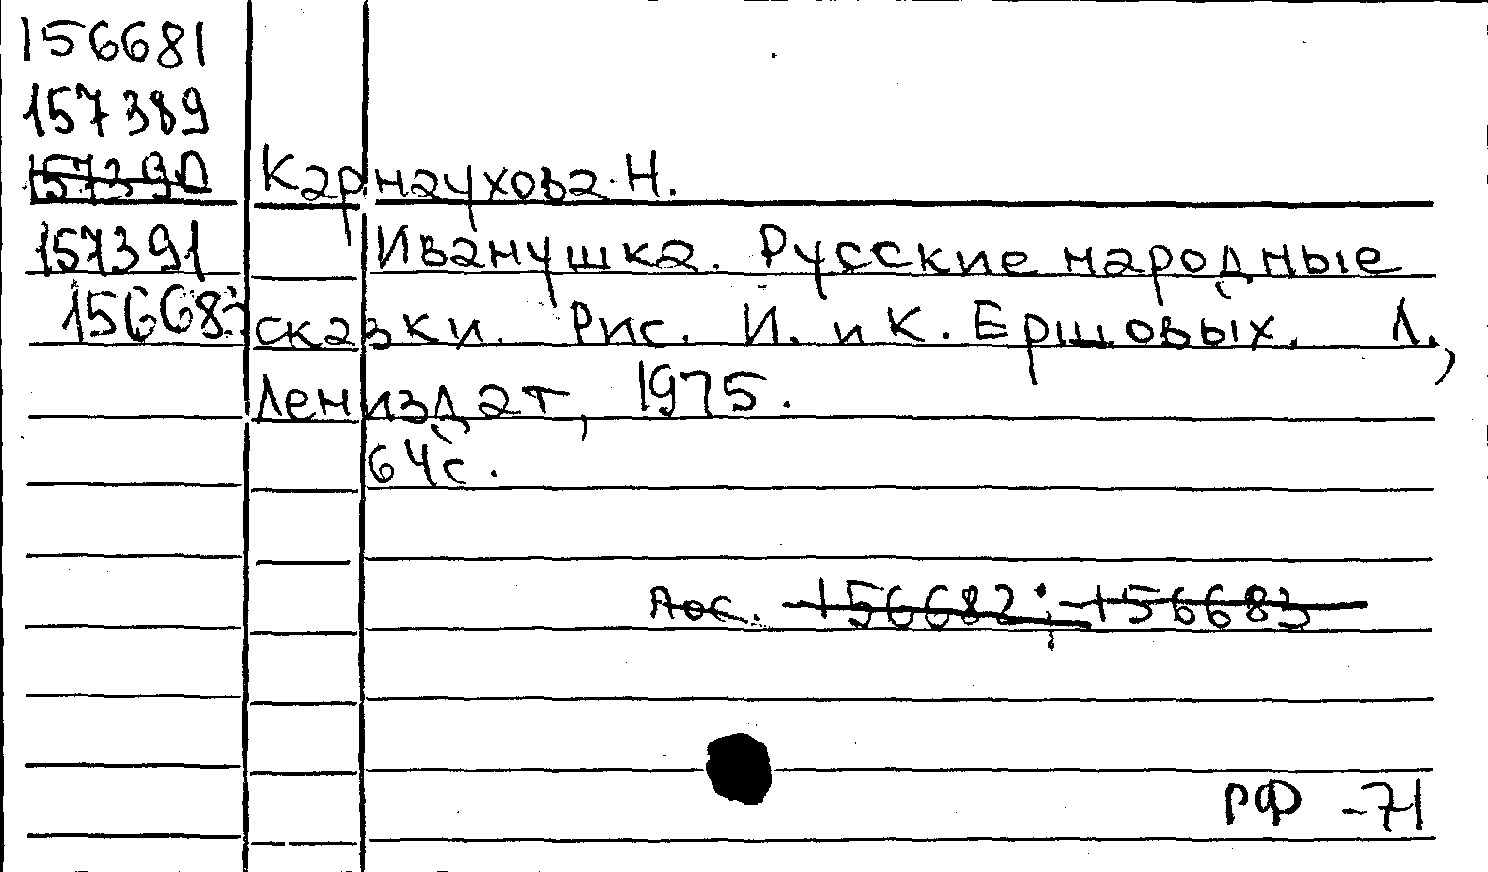 156681
157389
157390
Карнаухова Н.
157391
Иванушка. Русские народные
156683
сказки. Рис. И. и К. Ершовых. Л.,
Лениздат, 1975.
64с.
156682; 156683
РФ -71